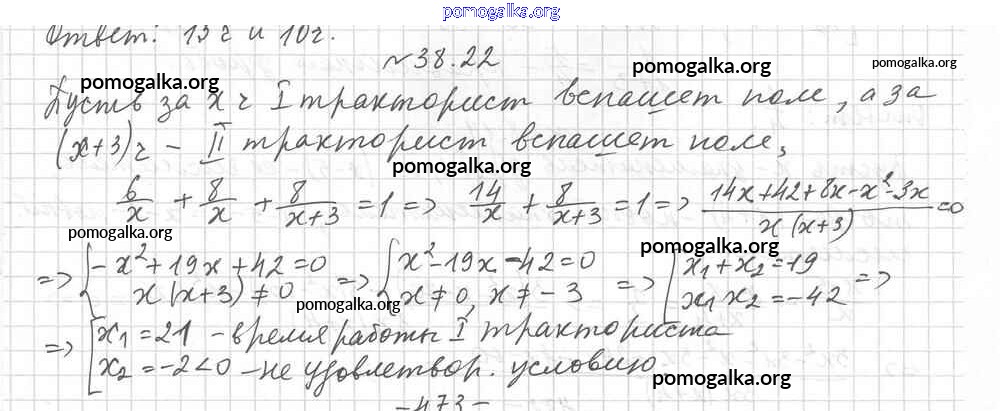 pomogalka.org
Ответ: 15 ч и 10 ч.
№38.22
pomogalka.org pomogalka.org pomogalka.org
Пусть за x ч I тракторист вспашет поле, а за
(x+3) ч – II тракторист вспашет поле,
pomogalka.org
6/x + 8/x + 8/(x+3) = 1 => 14/x + 8/(x+3) = 1 => (14x+42+8x-x²-3x)/(x(x+3)) = 0
pomogalka.org pomogalka.org
=> { -x²+19x+42=0 => { x²-19x-42=0 => [ x₁+x₂=19 =>
x(x+3)≠0 x≠0, x≠-3 x₁x₂=-42
pomogalka.org
=> [ x₁=21 – время работы I тракториста
x₂=-2<0 – не удовлетвор. условию
pomogalka.org
-473-